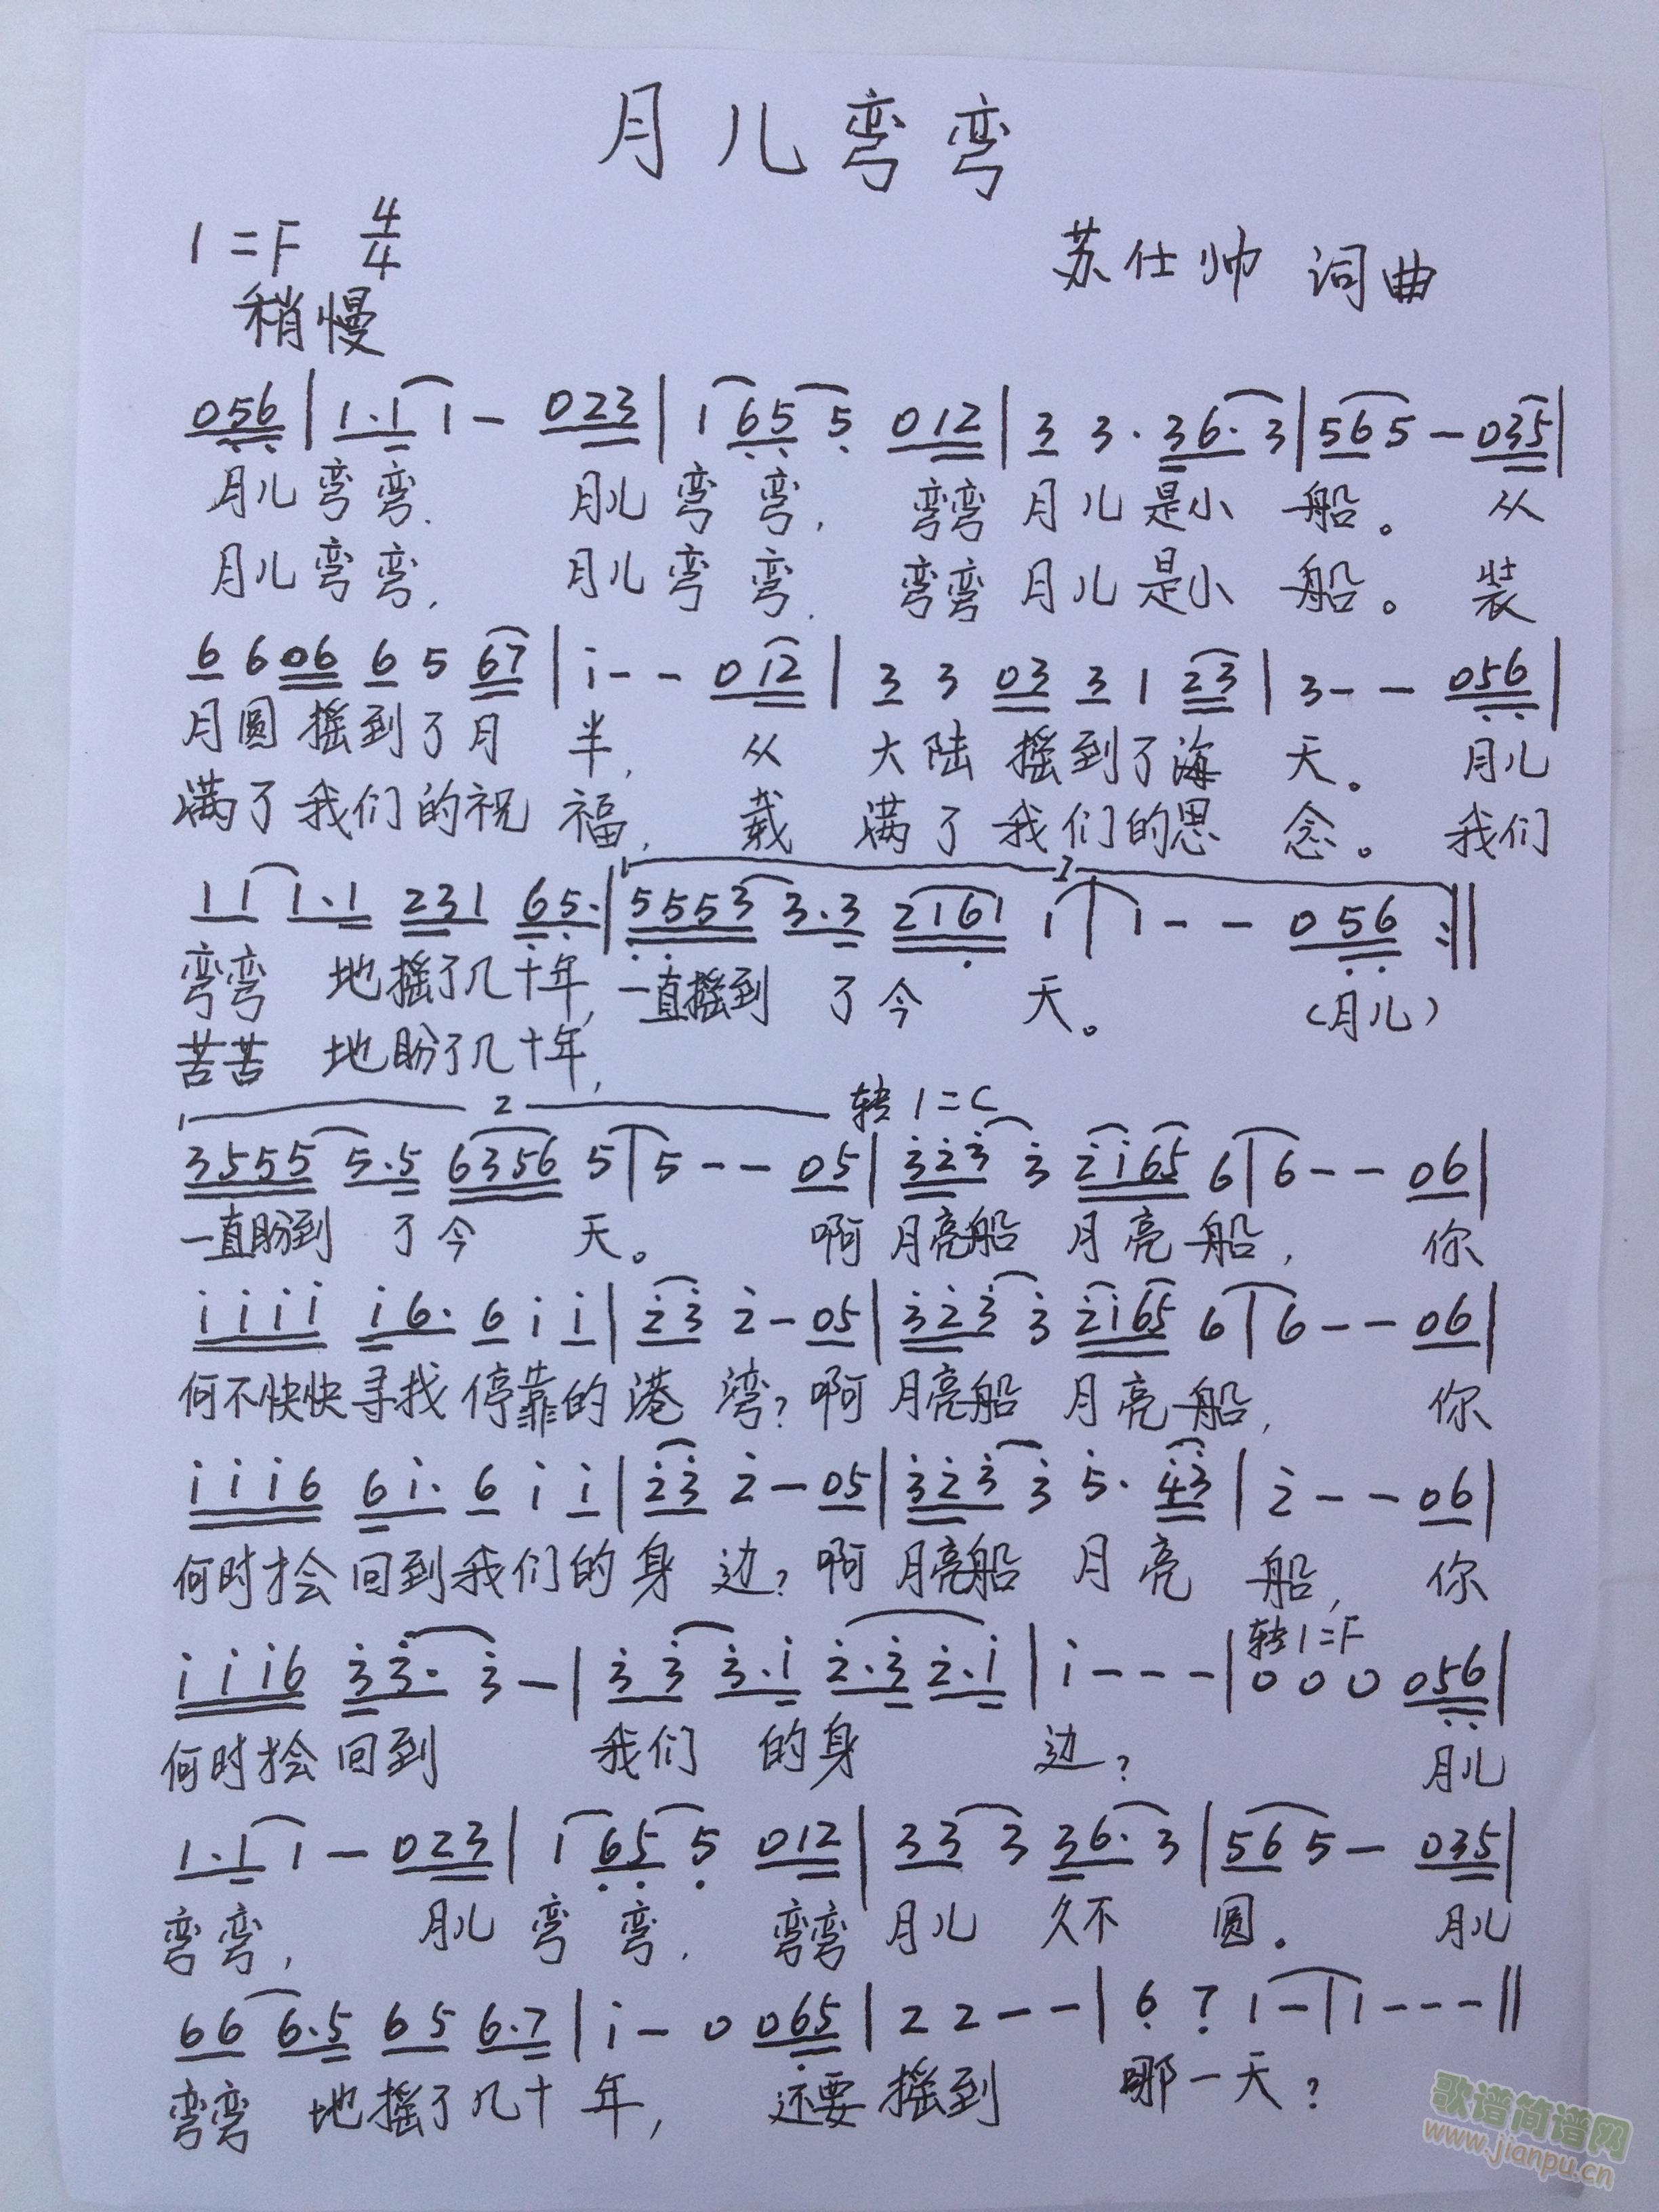 月儿弯弯
1=F 4/4
苏仕帅 词曲
稍慢
056 | 1·1 1 - 023 | 1 65 5 012 | 3 3·36·3 | 565 - 035 |
月儿弯弯, 月儿弯弯, 弯弯月儿是小船。从
月儿弯弯, 月儿弯弯, 弯弯月儿是小船。装
6 6 06 6 5 67 | i - - 012 | 3 3 03 3 1 23 | 3 - - 056 |
月圆摇到了月半, 从大陆摇到了海天。月儿
满了我们的祝福, 载满了我们的思念。我们
1
11 1·1 231 65· | 5553 3·3 2161 1 | 1 - - 056 :||
弯弯地摇了几十年, 一直摇到了今天。(月儿)
苦苦地盼了几十年,
2 转1=C
3555 5·5 6356 5 | 5 - - 05 | 323 3 2i65 6 | 6 - - 06 |
一直盼到了今天。啊月亮船月亮船, 你
iiii i6· 6 i i | 23 2 - 05 | 323 3 2i65 6 | 6 - - 06 |
何不快快寻找停靠的港湾?啊月亮船月亮船, 你
iii6 6i· 6 i i | 23 2 - 05 | 323 3 5· 43 | 2 - - 06 |
何时才会回到我们的身边?啊月亮船月亮船, 你
转1=F
iii6 33· 3 - | 3 3 3·i 2·3 2·i | i - - - | 0 0 0 056 |
何时才会回到我们的身边?月儿
1·1 1 - 023 | 1 65 5 012 | 33 3 36·3 | 565 - 035 |
弯弯, 月儿弯弯, 弯弯月儿久不圆。月儿
66 6·5 65 6·7 | i - 0 065 | 2 2 - - | 6 7 1 - | 1 - - - ||
弯弯地摇了几十年, 还要摇到哪一天?
歌谱简谱网
www.jianpu.cn